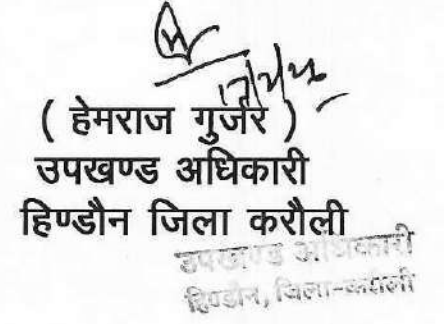 ( हेमराज गुर्जर )
उपखण्ड अधिकारी
हिण्डौन जिला करौली
उपखण्ड अधिकारी
हिण्डौन, जिला-करौली